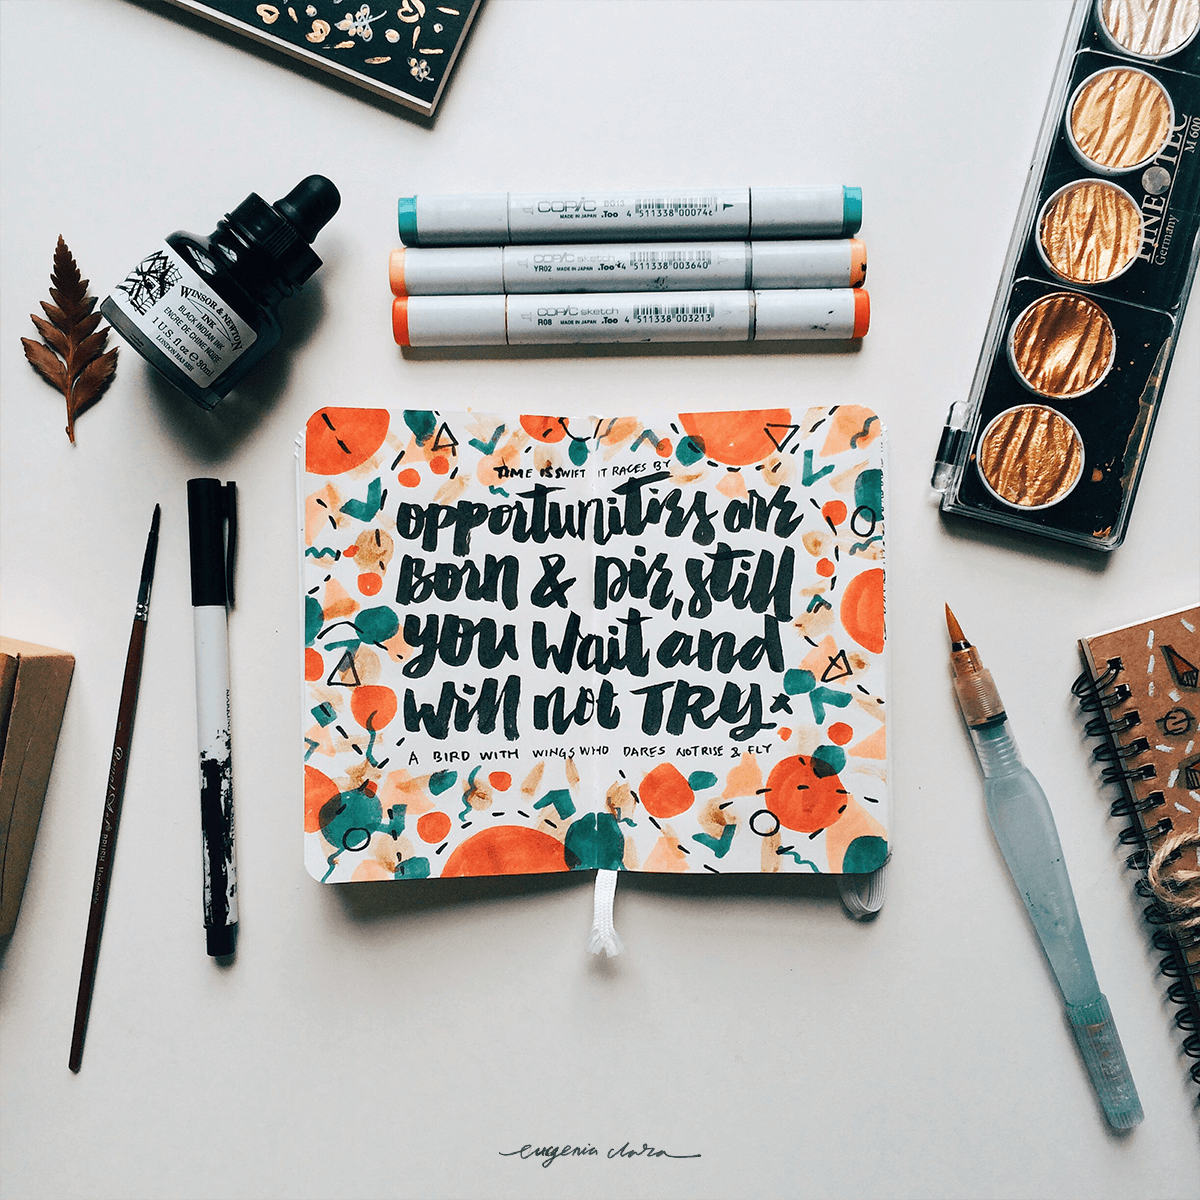 COPIC BG13 MADE IN JAPAN .Too
COPIC sketch
YR02 MADE IN JAPAN .Too 4 511338 003640
COPIC sketch
R08 MADE IN JAPAN .Too 4 511338 003213
FINETEC M 600
Germany
WINSOR & NEWTON
INK
BLACK INDIAN INK
ENCRE DE CHINE NOIRE
1 U.S. fl oz ℮ 30ml
TIME IS SWIFT IT RACES BY
opportunities are
Born & Die, still
you wait and
will not TRY
A BIRD WITH WINGS WHO DARES NOT RISE & FLY
eugenia clara